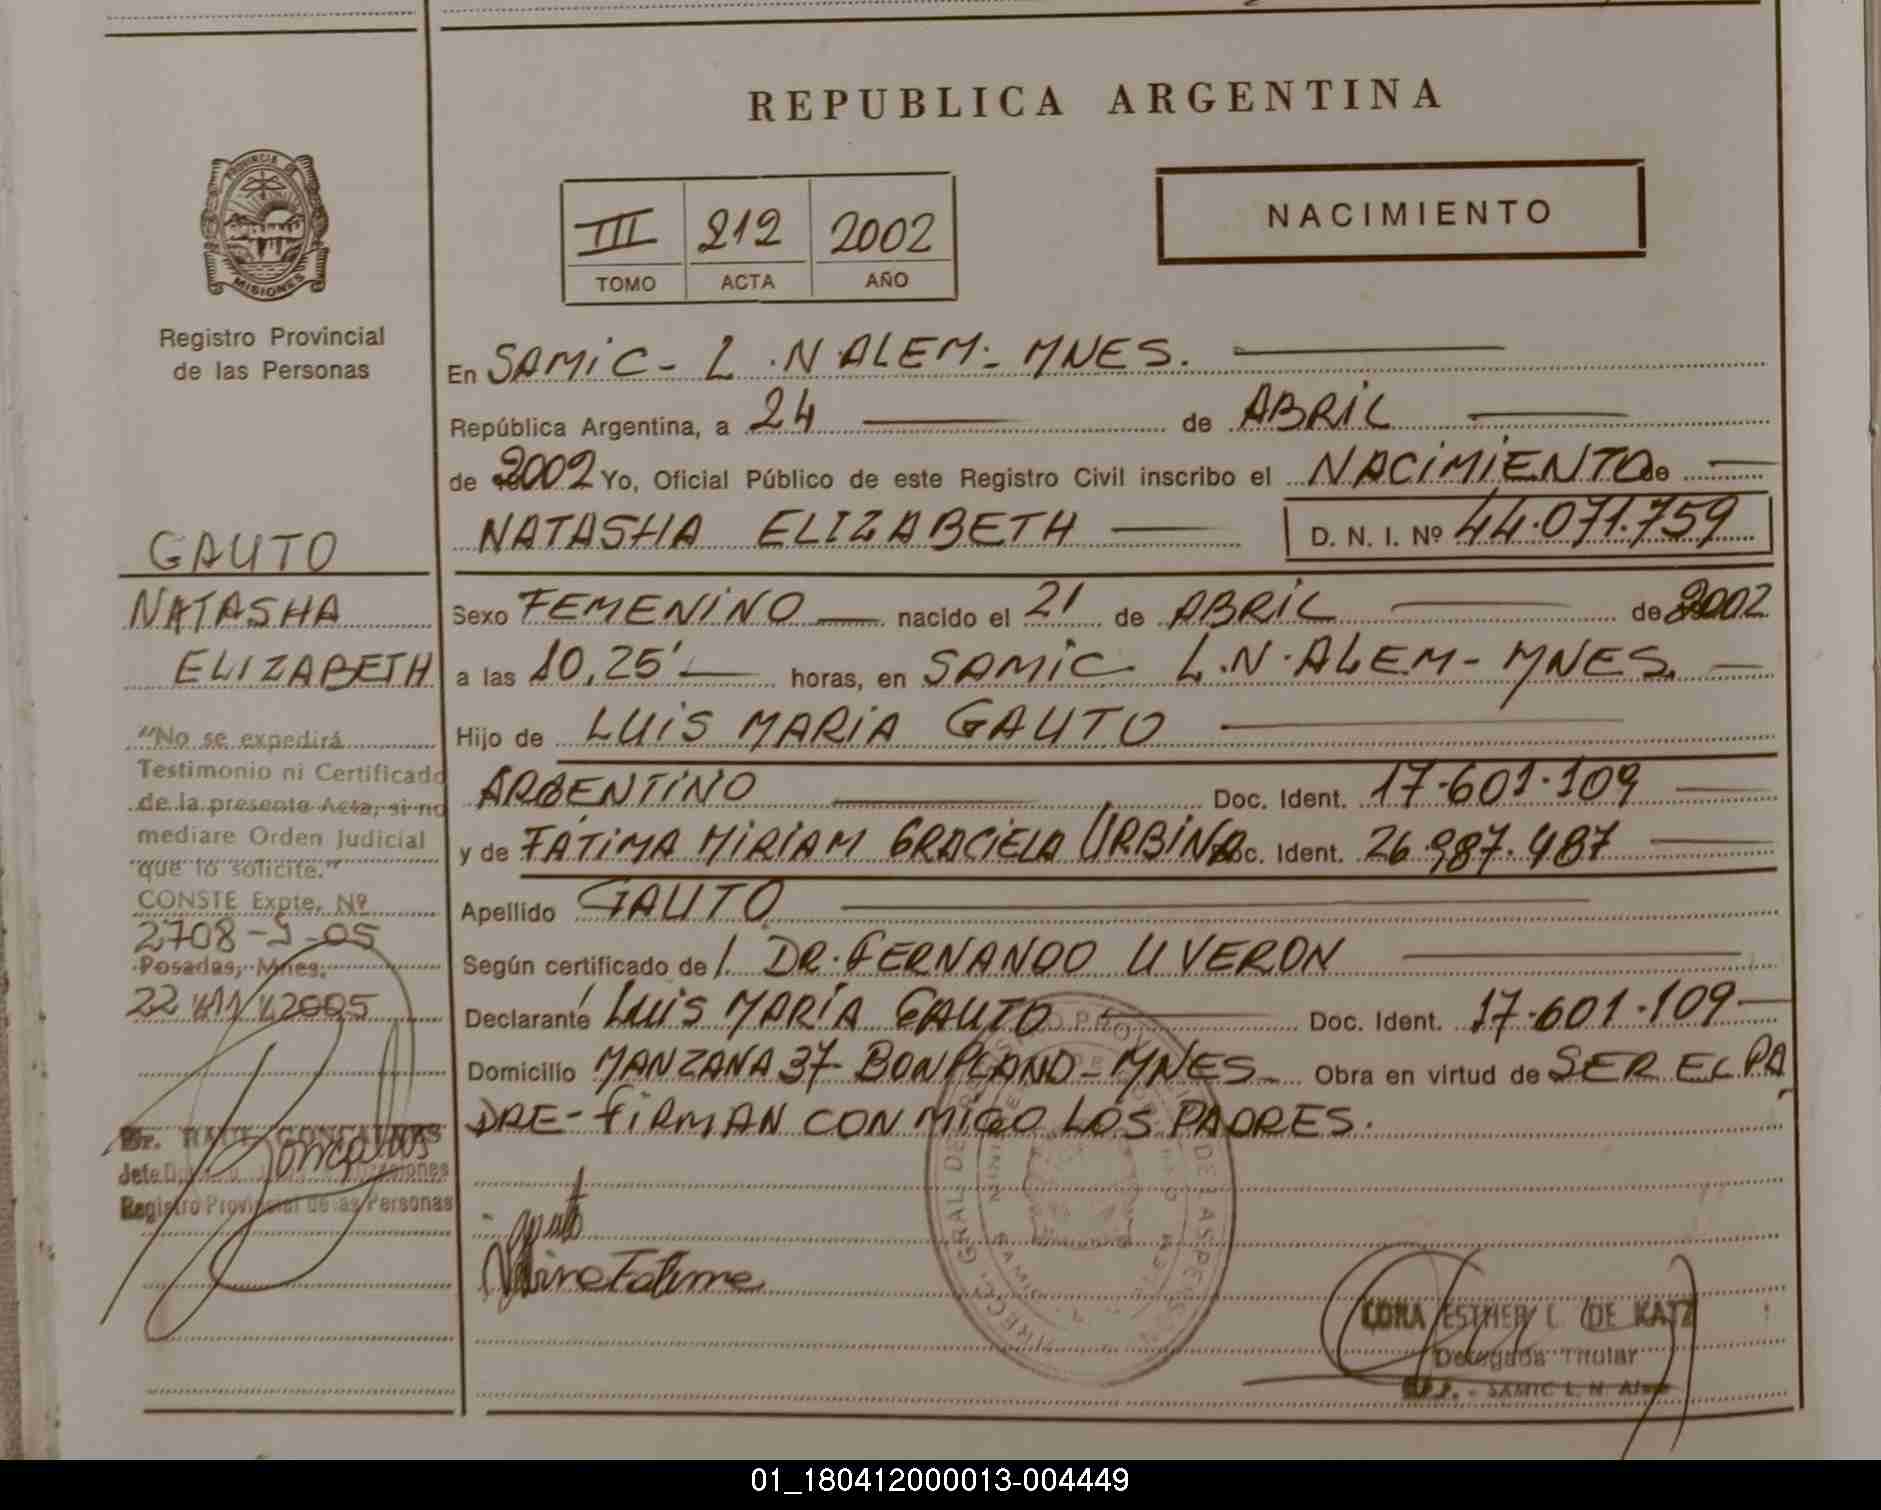 REPUBLICA ARGENTINA
PROVINCIA DE
MISIONES
Registro Provincial
de las Personas
III 212 2002
TOMO ACTA AÑO
NACIMIENTO
En SAMIC - L.N.ALEM - MNES.
República Argentina, a 24 de ABRIL
de 2002 Yo, Oficial Público de este Registro Civil inscribo el NACIMIENTO de
NATASHA ELIZABETH D. N. I. Nº 44.071.759
Sexo FEMENINO nacido el 21 de ABRIL de 2002
a las 10,25' horas, en SAMIC L.N.ALEM - MNES.
Hijo de LUIS MARIA GAUTO
ARGENTINO Doc. Ident. 17.601.109
y de FÁTIMA MIRIAM GRACIELA URBINA Doc. Ident. 26.987.487
Apellido GAUTO
Según certificado de DR. FERNANDO U VERON
Declarante LUIS MARÍA GAUTO Doc. Ident. 17.601.109
Domicilio MANZANA 37 - BONPLAND - MNES Obra en virtud de SER EL PA
DRE - FIRMAN CONMIGO LOS PADRES.
GAUTO
NATASHA
ELIZABETH
"No se expedirá
Testimonio ni Certificado
de la presente Acta, si no
mediare Orden Judicial
que lo solicite."
CONSTE Expte. Nº
2708-
-05
Posadas, Mnes.
22 11 2005
Dr. RAUL GONCALVES
Jefe
Registro Provincial de las Personas
ESTHER L. DE KATZ
Delegada Titular
SAMIC L. N. Alem
01_180412000013-004449